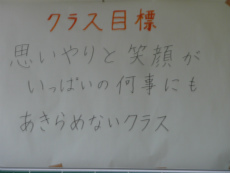 クラス目標
思いやりと笑顔が
いっぱいの何事にも
あきらめないクラス